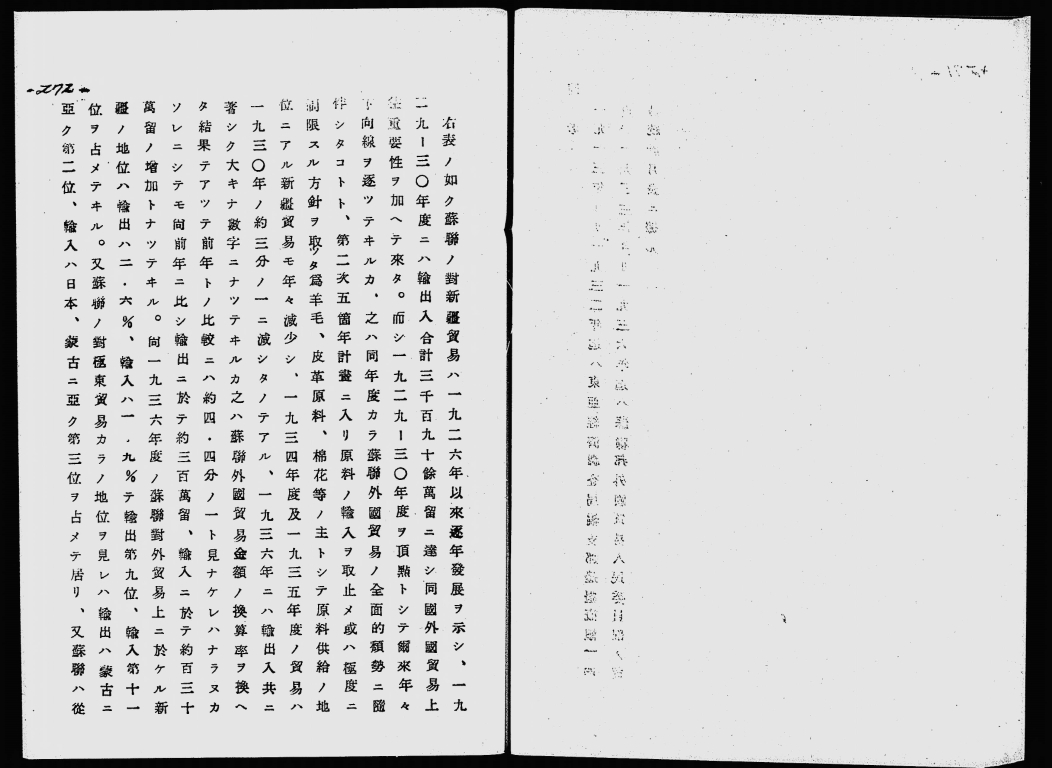 右表ノ如ク蘇聯ノ對新疆貿易ハ一九二六年以來逐年發展ヲ示シ、一九
二九ー三〇年度ニハ輸出入合計三千百九十餘萬留ニ達シ同國外國貿易上
重要性ヲ加ヘテ來タ。而シ一九二九ー三〇年度ヲ頂點トシテ爾來年々
下向線ヲ逐ツテヰルカ、之ハ同年度カラ蘇聯外國貿易ノ全面的頽勢ニ隨
伴シタコトト、第二次五箇年計畫ニ入リ原料ノ輸入ヲ取止メ或ハ極度ニ
制限スル方針ヲ取ツタ爲羊毛、皮革原料、棉花等ノ主トシテ原料供給ノ地
位ニアル新疆貿易モ年々減少シ、一九三四年度及一九三五年度ノ貿易ハ
一九三〇年ノ約三分ノ一ニ減シタノテアル、一九三六年ニハ輸出入共ニ
著シク大キナ數字ニナツテヰルカ之ハ蘇聯外國貿易金額ノ換算率ヲ換ヘ
タ結果テアツテ前年トノ比較ニハ約四・四分ノ一ト見ナケレハナラヌカ
ソレニシテモ尙前年ニ比シ輸出ニ於テ約三百萬留、輸入ニ於テ約百三十
萬留ノ增加トナツテヰル。尙一九三六年度ノ蘇聯對外貿易上ニ於ケル新
疆ノ地位ハ輸出ハ二・六%、輸入ハ一・九%テ輸出第九位、輸入第十一
位ヲ占メテヰル。又蘇聯ノ對極東貿易カラノ地位ヲ見レハ輸出ハ蒙古ニ
亞ク第二位、輸入ハ日本、蒙古ニ亞ク第三位ヲ占メテ居リ、又蘇聯ハ從
-272-